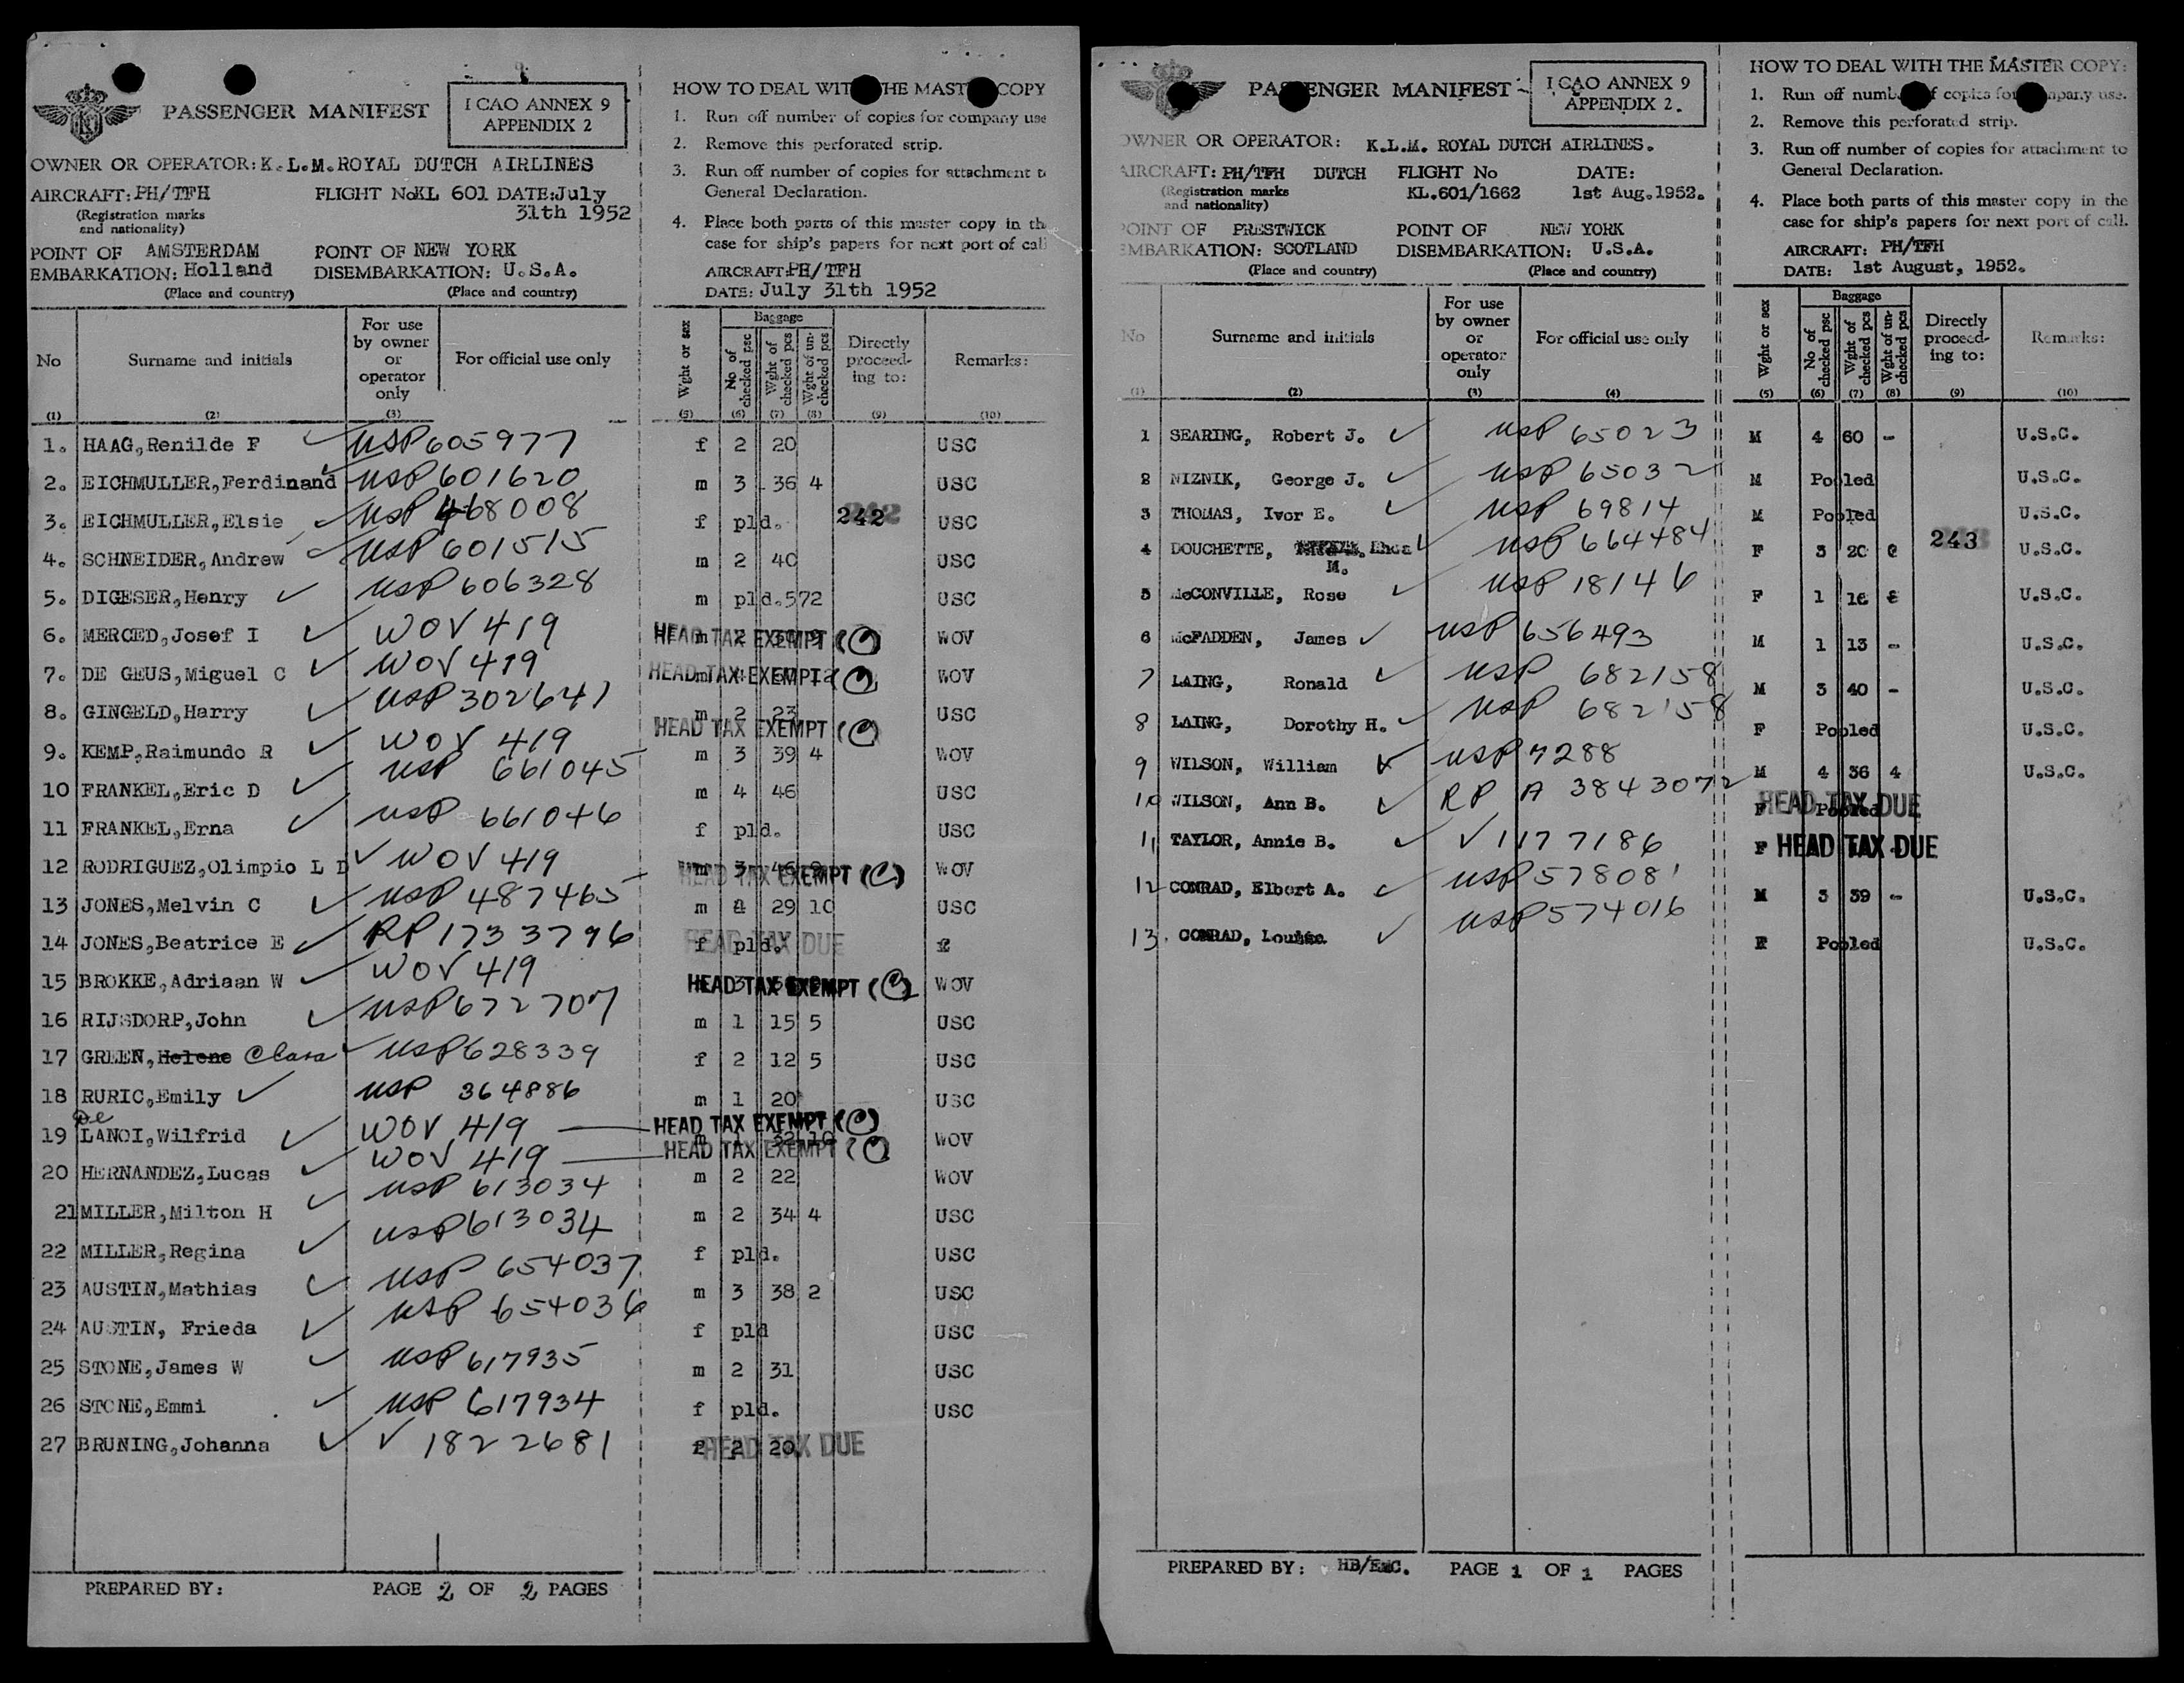 PASSENGER MANIFEST
I CAO ANNEX 9
APPENDIX 2
OWNER OR OPERATOR: K.L.M. ROYAL DUTCH AIRLINES
AIRCRAFT: PH/TFH FLIGHT No KL 601 DATE: July
(Registration marks 31th 1952
and nationality)
POINT OF AMSTERDAM POINT OF NEW YORK
EMBARKATION: Holland DISEMBARKATION: U.S.A.
(Place and country) (Place and country)
HOW TO DEAL WITH THE MASTER COPY
1. Run off number of copies for company use
2. Remove this perforated strip.
3. Run off number of copies for attachment to
General Declaration.
4. Place both parts of this master copy in the
case for ship's papers for next port of call
AIRCRAFT: PH/TFH
DATE: July 31th 1952
No Surname and initials For use by owner or operator only For official use only Wght or sex Baggage No of checked psc Wght of checked pcs Wght of un-checked pcs Directly proceed-ing to: Remarks:
(1) (2) (3) (5) (6) (7) (8) (9) (10)
1. HAAG, Renilde F USP 605977 f 2 20 USC
2. EICHMULLER, Ferdinand USP 601620 m 3 36 4 USC
3. EICHMULLER, Elsie USP 468008 f pld. 242 USC
4. SCHNEIDER, Andrew USP 601515 m 2 40 USC
5. DIGESER, Henry USP 606328 m pld. 572 USC
6. MERCED, Josef I WOV 419 HEAD TAX EXEMPT (C) WOV
7. DE GEUS, Miguel C WOV 419 HEAD TAX EXEMPT (C) WOV
8. GINGELD, Harry USP 302641 m 2 23 USC
9. KEMP, Raimundo R WOV 419 HEAD TAX EXEMPT (C) m 3 39 4 WOV
10 FRANKEL, Eric D USP 661045 m 4 46 USC
11 FRANKEL, Erna USP 661046 f pld. USC
12 RODRIGUEZ, Olimpio L D WOV 419 m 3 46 HEAD TAX EXEMPT (C) WOV
13 JONES, Melvin C USP 487465 m 29 10 USC
14 JONES, Beatrice E RP 1733796 f pld. HEAD TAX DUE
15 BROKKE, Adriaan W WOV 419 HEAD TAX EXEMPT (C) WOV
16 RIJSDORP, John USP 672707 m 1 15 5 USC
17 GREEN, Helene Clara USP 628339 f 2 12 5 USC
18 RURIC, Emily USP 364886 m 1 20 USC
19 De LANOI, Wilfrid WOV 419 HEAD TAX EXEMPT (C) m 1 32 10 WOV
20 HERNANDEZ, Lucas WOV 419 HEAD TAX EXEMPT (C) m 2 22 WOV
21 MILLER, Milton H USP 613034 m 2 34 4 USC
22 MILLER, Regina USP 613034 f pld. USC
23 AUSTIN, Mathias USP 654037 m 3 38 2 USC
24 AUSTIN, Frieda USP 654036 f pld USC
25 STONE, James W USP 617935 m 2 31 USC
26 STONE, Emmi USP 617934 f pld. USC
27 BRUNING, Johanna V 1822681 f 2 20 HEAD TAX DUE
PREPARED BY: PAGE 2 OF 2 PAGES
PASSENGER MANIFEST
I CAO ANNEX 9
APPENDIX 2.
OWNER OR OPERATOR: K.L.M. ROYAL DUTCH AIRLINES.
AIRCRAFT: PH/TFH DUTCH FLIGHT No DATE:
(Registration marks KL.601/1662 1st Aug.1952.
and nationality)
POINT OF PRESTWICK POINT OF NEW YORK
EMBARKATION: SCOTLAND DISEMBARKATION: U.S.A.
(Place and country) (Place and country)
HOW TO DEAL WITH THE MASTER COPY:
1. Run off number of copies for company use.
2. Remove this perforated strip.
3. Run off number of copies for attachment to
General Declaration.
4. Place both parts of this master copy in the
case for ship's papers for next port of call.
AIRCRAFT: PH/TFH
DATE: 1st August, 1952.
No Surname and initials For use by owner or operator only For official use only Wght or sex Baggage No of checked psc Wght of checked pcs Wght of un-checked pcs Directly proceed-ing to: Remarks:
(1) (2) (3) (4) (5) (6) (7) (8) (9) (10)
1 SEARING, Robert J. USP 65023 M 4 60 - U.S.C.
2 NIZNIK, George J. USP 65032 M Pooled U.S.C.
3 THOMAS, Ivor E. USP 69814 M Pooled U.S.C.
4 DOUCHETTE, Rhea M. USP 664484 F 3 20 243 U.S.C.
5 McCONVILLE, Rose USP 18146 F 1 16 U.S.C.
6 McFADDEN, James USP 656493 M 1 13 - U.S.C.
7 LAING, Ronald USP 682158 M 3 40 - U.S.C.
8 LAING, Dorothy H. USP 682158 F Pooled U.S.C.
9 WILSON, William USP 7288 M 4 36 4 U.S.C.
10 WILSON, Ann B. RP A 3843072 F Pooled HEAD TAX DUE
11 TAYLOR, Annie B. V 1177186 F HEAD TAX DUE
12 CONRAD, Elbert A. USP 578081 M 3 39 - U.S.C.
13. CONRAD, USP 574016 F Pooled U.S.C.
PREPARED BY: PAGE 1 OF 1 PAGES